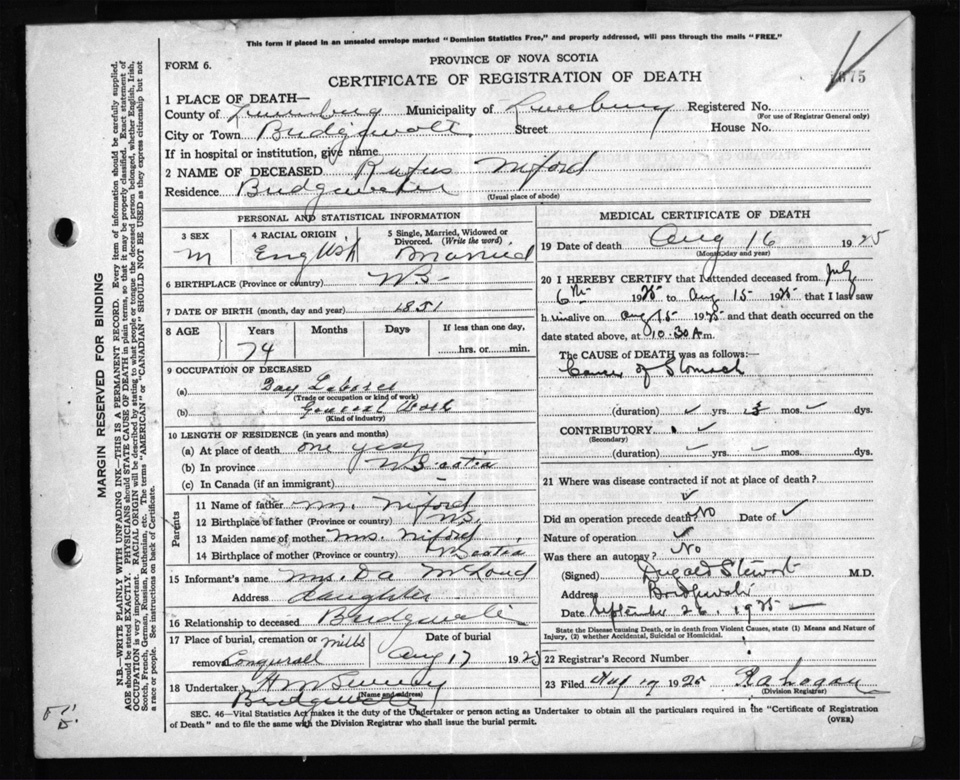 This form if placed in an unsealed envelope marked "Dominion Statistics Free," and properly addressed, will pass through the mails "FREE."
FORM 6.
PROVINCE OF NOVA SCOTIA
CERTIFICATE OF REGISTRATION OF DEATH
675
1 PLACE OF DEATH—
County of Lunenburg Municipality of Lunenburg Registered No.
(For use of Registrar General only)
City or Town Bridgewater Street House No.
If in hospital or institution, give name
2 NAME OF DECEASED Rufus Niford
Residence Bridgewater (Usual place of abode)
PERSONAL AND STATISTICAL INFORMATION
3 SEX 4 RACIAL ORIGIN 5 Single, Married, Widowed or Divorced. (Write the word)
M English Married
6 BIRTHPLACE (Province or country) NS
7 DATE OF BIRTH (month, day and year) 1851
8 AGE Years Months Days If less than one day,
74 hrs. or min.
9 OCCUPATION OF DECEASED
(a) Day Laborer
(Trade or occupation or kind of work)
(b) General Work
(Kind of industry)
10 LENGTH OF RESIDENCE (in years and months)
(a) At place of death one year
(b) In province N Scotia
(c) In Canada (if an immigrant)
Parents
11 Name of father Mr. Niford
12 Birthplace of father (Province or country) NS.
13 Maiden name of mother Mrs. Niford
14 Birthplace of mother (Province or country) N Scotia
15 Informant's name Mrs.
Address daughter
16 Relationship to deceased Bridgewater
17 Place of burial, cremation or removal Conquerall Mills Date of burial Aug 17 1925
18 Undertaker
(Name and address)
Bridgewater
MEDICAL CERTIFICATE OF DEATH
19 Date of death Aug 16 1925
(Month, day and year)
20 I HEREBY CERTIFY that I attended deceased from July
6th 1925 to Aug 15 1925 that I last saw
h im alive on Aug 15 1925 and that death occurred on
date stated above, at 10.30 A m.
The CAUSE of DEATH was as follows:
Cancer of Stomach
(duration) yrs. 3 mos. dys.
CONTRIBUTORY
(Secondary)
(duration) yrs. mos. dys.
21 Where was disease contracted if not at place of death?
Did an operation precede death? No Date of
Nature of operation
Was there an autopsy? No
(Signed) Dugald Stewart M.D.
Address Bridgewater
Date September 26, 1925
State the Disease causing Death, or in death from Violent Causes, state (1) Means and Nature of Injury, (2) whether Accidental, Suicidal or Homicidal.
22 Registrar's Record Number
23 Filed Aug 19 1925
(Division Registrar)
SEC. 46—Vital Statistics Act makes it the duty of the Undertaker or person acting as Undertaker to obtain all the particulars required in the "Certificate of Registration
of Death" and to file the same with the Division Registrar who shall issue the burial permit.
(OVER)
MARGIN RESERVED FOR BINDING
N.B.—WRITE PLAINLY WITH UNFADING INK—THIS IS A PERMANENT RECORD. Every item of information should be carefully supplied.
AGE should be stated EXACTLY. PHYSICIANS should STATE CAUSE OF DEATH in plain terms, so that it may be properly classified. Exact statement of
OCCUPATION is very important. RACIAL ORIGIN will be described by stating to what people or tongue the deceased person belonged, whether English, Irish,
Scotch, French, German, Russian, Ruthenian, etc. The terms "AMERICAN" or "CANADIAN" SHOULD NOT BE USED as they express citizenship but not
a race or people. See instructions on back of Certificate.